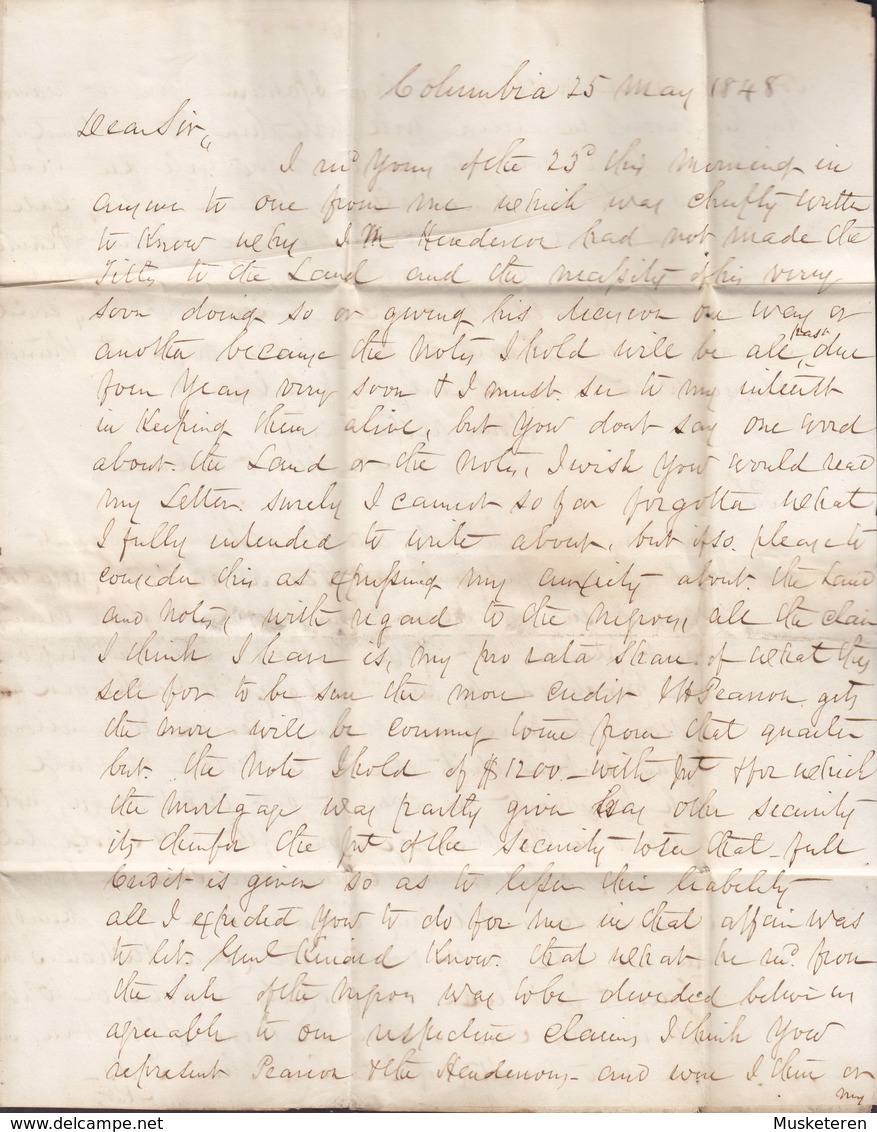 Columbia 25 May 1848
Dear Sir,
I recd Yours of the 23d this morning in
answer to one from me which was chiefly written
to Know why I M Henderson had not made the
Titles to the Land and the necessity of his verry
soon doing so or giving his reason one way or
another because the notes I hold will be all past due
four Years verry soon & I must see to my interest
in Keeping them alive, but You dont say one word
about the Land or the notes, I wish You would read
my Letter. surely I cannot so far forgotten what
I fully intended to write about, but if so please to
consider this as expressing my anxiety about the Land
and Notes, with regard to the negroes, all the claim
I think I have is, my pro rata Share of what they
sell for to be sure the more credit J H Pearson gets
the more will be coming to me from that quarter
but the note I hold of $1200 - with Int & for which
the mortgage was partly given has other security
its therefor the Int of the security to see that full
Credit is given so as to lessen their liability
all I expected You to do for me in that affair was
to let Genl Kinard Know that what he recd from
the Sale of the negroes was to be devided between us
agreeable to our respective claims I think You
represent Pearson & the Hendersons - and were I them or
my
Musketeren